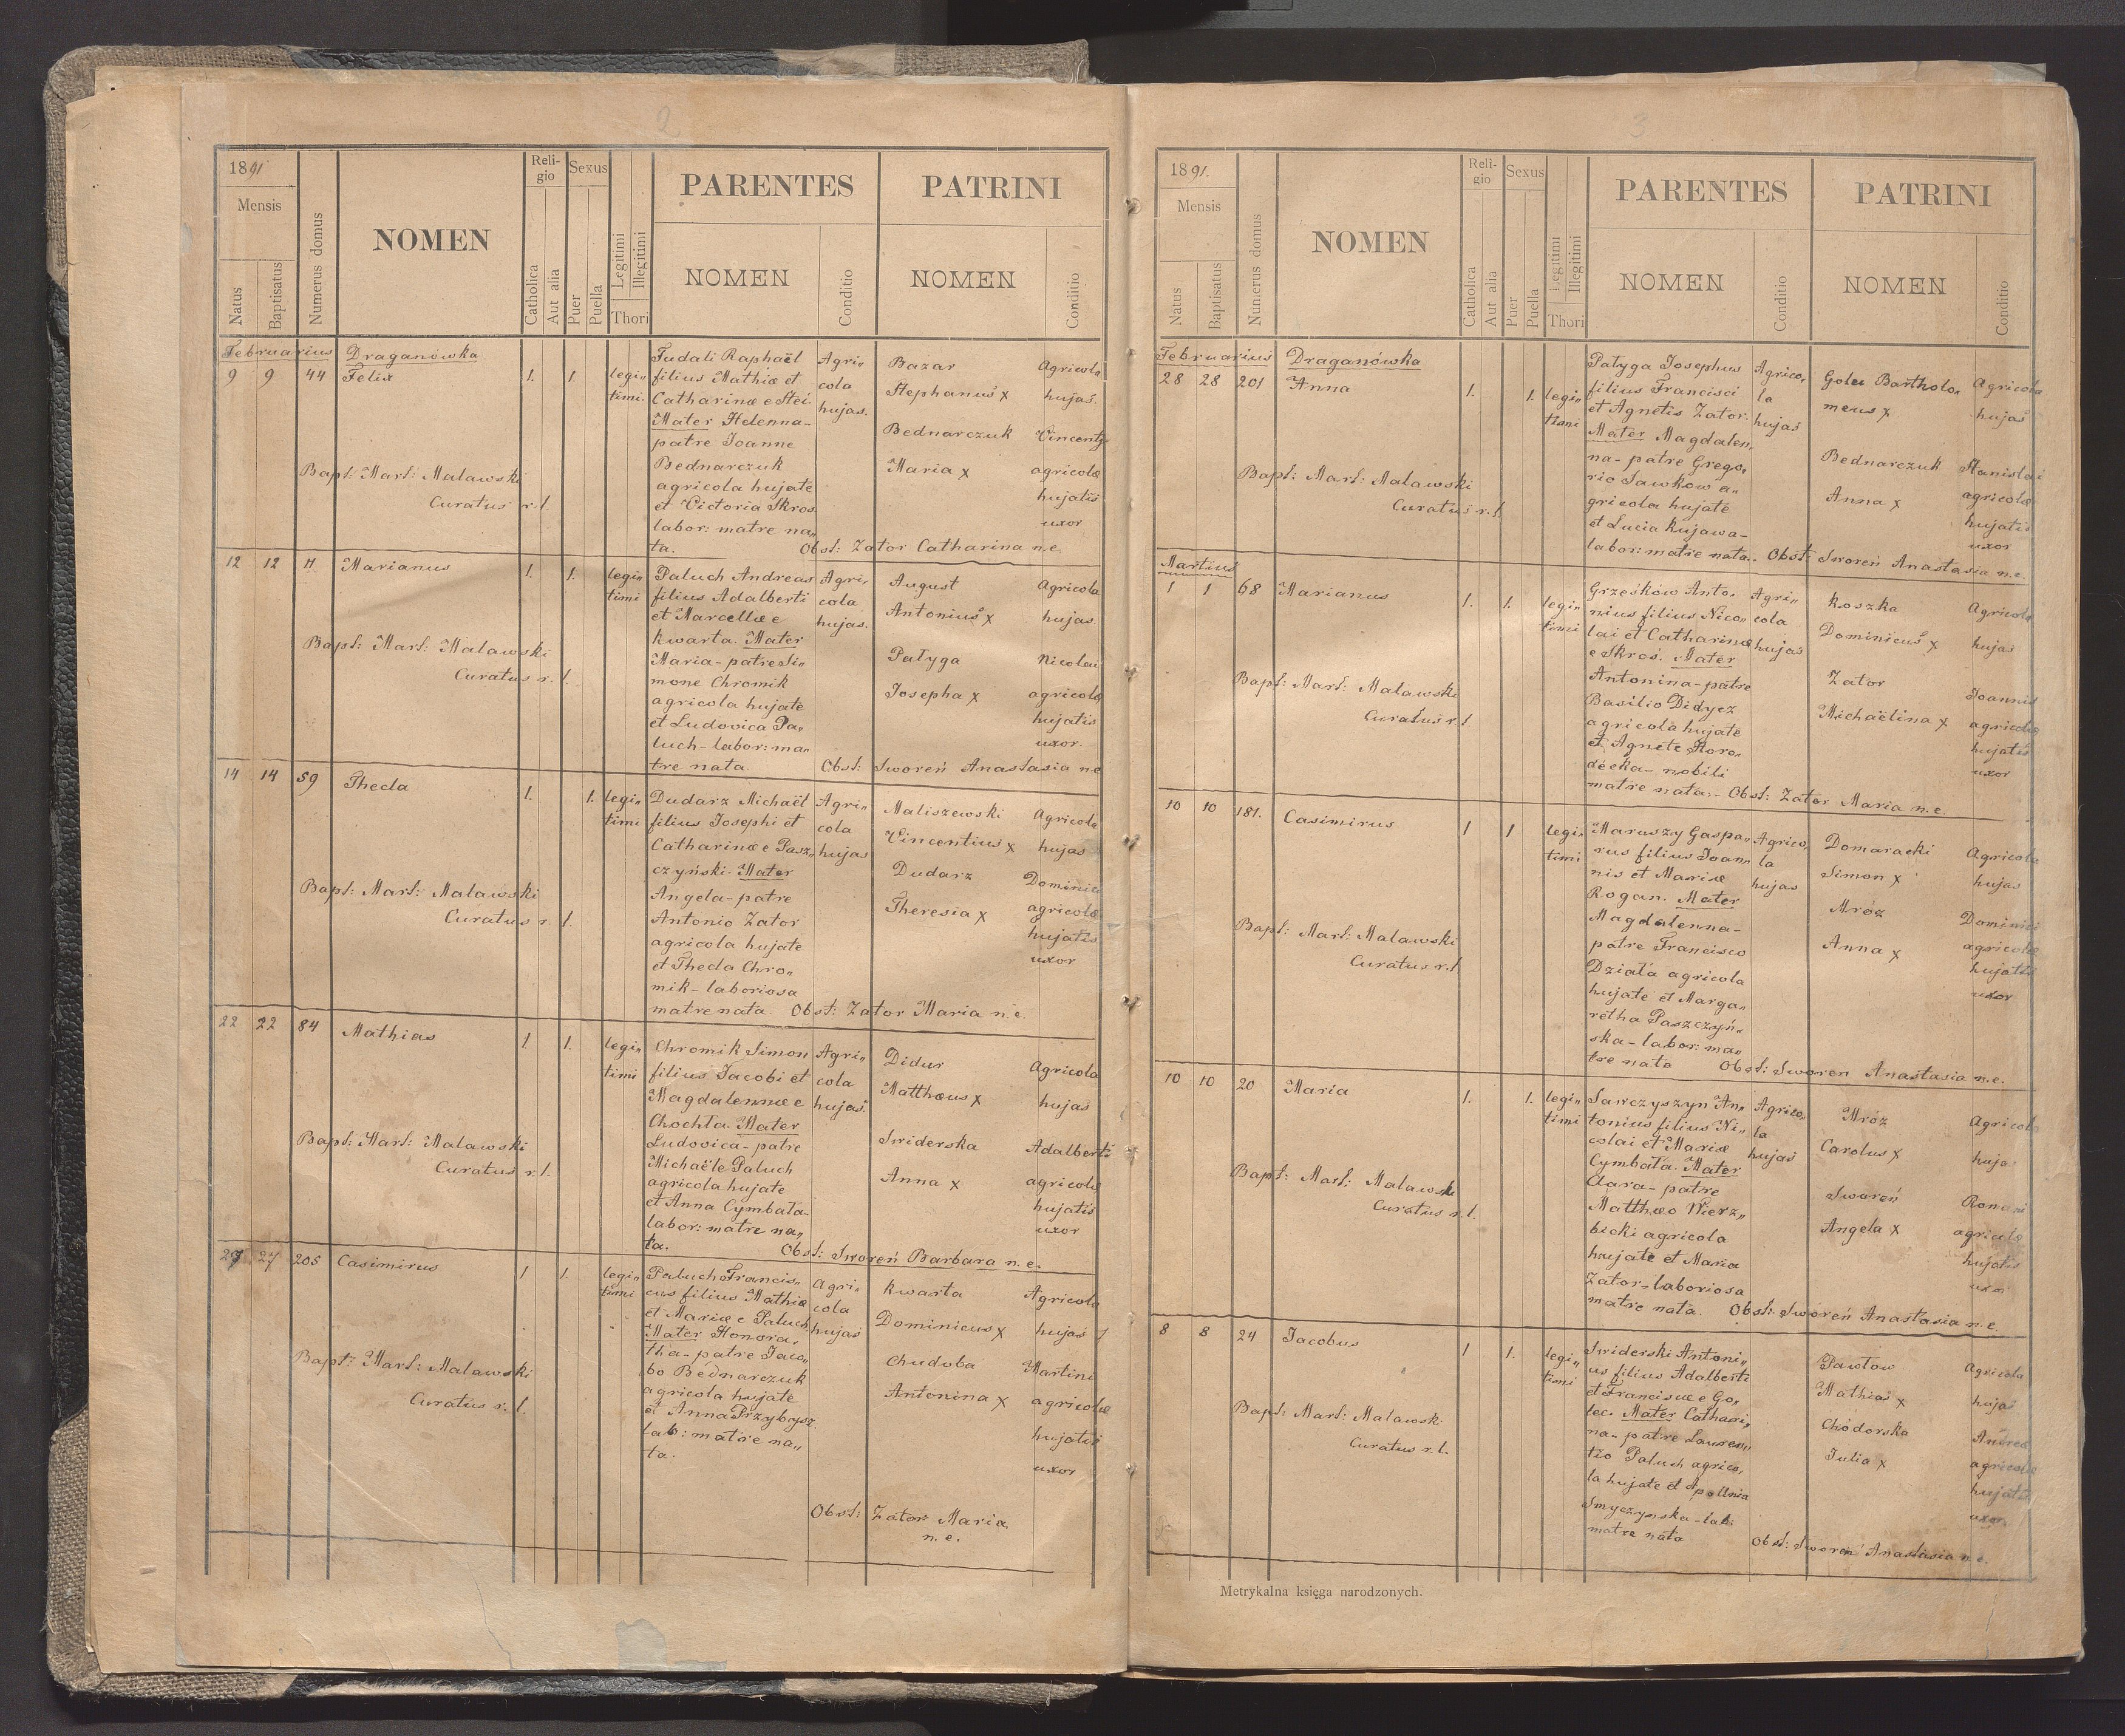 2
1891
Mensis
Natus
Baptisatus
Numerus domus
NOMEN
Reli-
gio
Catholica
Aut alia
Sexus
Puer
Puella
Legitimi
Illegitimi
Thori
PARENTES
NOMEN
Conditio
PATRINI
NOMEN
Conditio
Februarius Draganówka
9 9 44 Felix 1. 1. legi„
timi.
Bapt: Mart: Malawski
Curatus r. l.
Tudali Raphaël
filius Mathiæ et
Catharinæ e Stei.
Mater Helenna-
patre Joanne
Bednarczuk
agricola hujate
et Victoria Skros
labor: matre na„
ta.
Agri„
cola
hujas.
Bazar
Stephanus x
Bednarczuk
Maria x
Agricola
hujas.
Vincentj
agricolæ
hujatis
uxor
Obst: Zator Catharina n.e.
12 12 11 Marianus 1. 1. legi„
timi
Bapt: Mart: Malawski
Curatus r. l.
Paluch Andreas
filius Adalberti
et Marcellæ e
Kwarta. Mater
Maria-patre Si„
mone Chromik
agricola hujate
et Ludovica Pa„
luch-labor: ma„
tre nata.
Agri„
cola
hujas.
August
Antonius x
Patyga
Josepha x
Agricola
hujas.
Nicolai
agricolæ
hujatis
uxor.
Obst: Sworeń Anastasia n.e
14 14 59 Thecla 1. 1. legi„
timi
Bapt: Mart: Malawski
Curatus r. l.
Dudarz Michaël
filius Josephi et
Catharinæ e Pasz„
czyński. Mater
Angela-patre
Antonio Zator
agricola hujate
et Thecla Chro„
mik-laboriosa
matre nata.
Agri„
cola
hujas
Maliszewski
Vincentius x
Dudarz
Theresia x
Agricola
hujas
Dominici
agricolæ
hujatis
uxor
Obst: Zator Maria n.e.
22 22 84 Mathias 1. 1. legi„
timi
Bapt: Mart: Malawski
Curatus r. l.
Chromik Simon
filius Jacobi et
Magdalennæ e
Chochła. Mater
Ludovica-patre
Michaële Paluch
agricola hujate
et Anna Cymbała-
labor: matre na„
ta.
Agri„
cola
hujas.
Didur
Matthæus x
Swiderska
Anna x
Agricola
hujas
Adalberti
agricolæ
hujatis
uxor
Obst: Sworeń Barbara n.e.
27 27 205 Casimirus 1 1. legi„
timi
Bapt: Mart: Malawski
Curatus r. l.
Paluch Francis„
cus filius Mathiæ
et Mariæ e Paluch
Mater Honora„
tha-patre Jaco„
bo Bednarczuk
agricola hujate
et Anna Przybysz.
lab: matre na„
ta.
Agri„
cola
hujas
Kwarta
Dominicus x
Chuduba
Antonina x
Agricola
hujas
Martini
agricolæ
hujatis
uxor
Obst: Zator Maria
n.e.
3
1891.
Mensis
Natus
Baptisatus
Numerus domus
NOMEN
Reli-
gio
Catholica
Aut alia
Sexus
Puer
Puella
Legitimi
Illegitimi
Thori
PARENTES
NOMEN
Conditio
PATRINI
NOMEN
Conditio
Februarius Draganówka
28 28 201 Anna 1. 1. legi„
timi
Bapt: Mart: Malawski
Curatus r. l.
Patyga Josephus
filius Francisci
et Agnetis Zator.
Mater Magdalen„
na-patre Grego„
rio Sawkow a„
gricola hujate
et Lucia Kujawa-
labor: matre nata.
Agrico„
la
hujas
Golec Bartholo„
meus x
Bednarczuk
Anna x
Agricola
hujas
Stanislai
agricolæ
hujatis
uxor
Obst: Sworeń Anastasia n.e.
Martius
1 1 68 Marianus 1. 1. legi„
timi
Bapt: Mart: Malawski
Curatus r. l
Grzesków Anto„
nius filius Nico„
lai et Catharinæ
e Skros. Mater
Antonina-patre
Basilio Didycz
agricola hujate
et Agnete Horo„
decka-nobili
matre nata.
Agri„
cola
hujas
Koszka
Dominicus x
Zator
Michaëlina x
Agricola
hujas
Joannis
agricolæ
hujatis
uxor
Obst: Zator Maria n.e.
10 10 181. Casimirus 1 1 legi„
timi
Bapt: Mart: Malawski
Curatus r. l
Maruszy Gaspa„
rus filius Joan„
nis et Mariæ
Rogan. Mater
Magdalenna-
patre Francisco
Działa agricola
hujate et Marga„
retha Paszczyń„
ska-labor: ma„
tre nata
Agrico„
la
hujas
Domaracki
Simon x
Mróz
Anna x
Agricola
hujas
Dominici
agricolæ
hujatis
uxor
Obst: Sworen Anastasia n.e.
10 10 20 Maria 1. 1. legi„
timi
Bapt: Mart: Malawski
Curatus r. l.
Sawczyszyn An„
tonius filius Ni„
colai et Mariæ
Cymbała. Mater
Clara-patre
Matthæo Wierz„
bicki agricola
hujate et Maria
Zator-laboriosa
matre nata.
Agrico„
la
hujas
Mróz
Carolus x
Sworeń
Angela x
Agricola
hujas
Romani
agricolæ
hujatis
uxor
Obst: Sworeń Anastasia n.e.
8 8 24 Jacobus 1 1. legi„
timi
Bapt: Mart: Malawski
Curatus r. l.
Swiderski Antoni„
us filius Adalberti
et Franciscæ e Go„
lec. Mater Cathari„
na-patre Lauren„
tio Paluch agrico„
la hujate et Apollonia
Smyczynska-lab:
matre nata
Pawłow
Mathias x
Chodorska
Julia x
Agricola
hujas
Andreæ
agricolæ
hujatis
uxor.
Obst: Sworeń Anastasia n.e.
Metrykalna księga narodzonych.